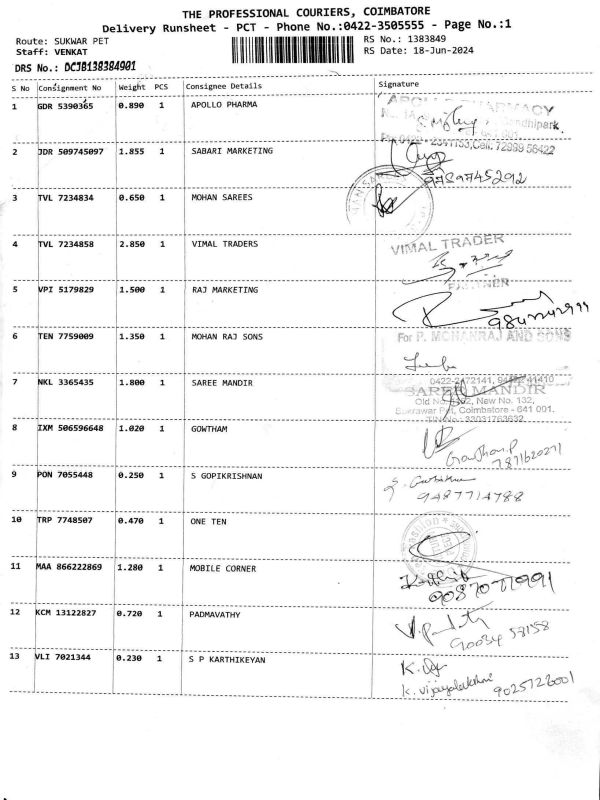 THE PROFESSIONAL COURIERS, COIMBATORE
Delivery Runsheet - PCT - Phone No.:0422-3505555 - Page No.:1
Route: SUKWAR PET RS No.: 1383849
Staff: VENKAT RS Date: 18-Jun-2024
DRS No.: DCJB138384901
S No Consignment No Weight PCS Consignee Details Signature
1 GDR 5390365 0.890 1 APOLLO PHARMA
2 JDR 509745097 1.855 1 SABARI MARKETING
9789745292
3 TVL 7234834 0.650 1 MOHAN SAREES
4 TVL 7234858 2.850 1 VIMAL TRADERS VIMAL TRADER
5 VPI 5179829 1.500 1 RAJ MARKETING
6 TEN 7759009 1.350 1 MOHAN RAJ SONS For P. MOHANRAJ AND SONS
7 NKL 3365435 1.800 1 SAREE MANDIR SAREE MANDIR
New No. 132,
Coimbatore - 641 001.
8 IXM 506596648 1.020 1 GOWTHAM
Gowtham.P
7871620271
9 PON 7055448 0.250 1 S GOPIKRISHNAN
9487714788
10 TRP 7748507 0.470 1 ONE TEN
11 MAA 866222869 1.280 1 MOBILE CORNER
12 KCM 13122827 0.720 1 PADMAVATHY
13 VLI 7021344 0.230 1 S P KARTHIKEYAN
K. Vijayalakshmi 9025726001